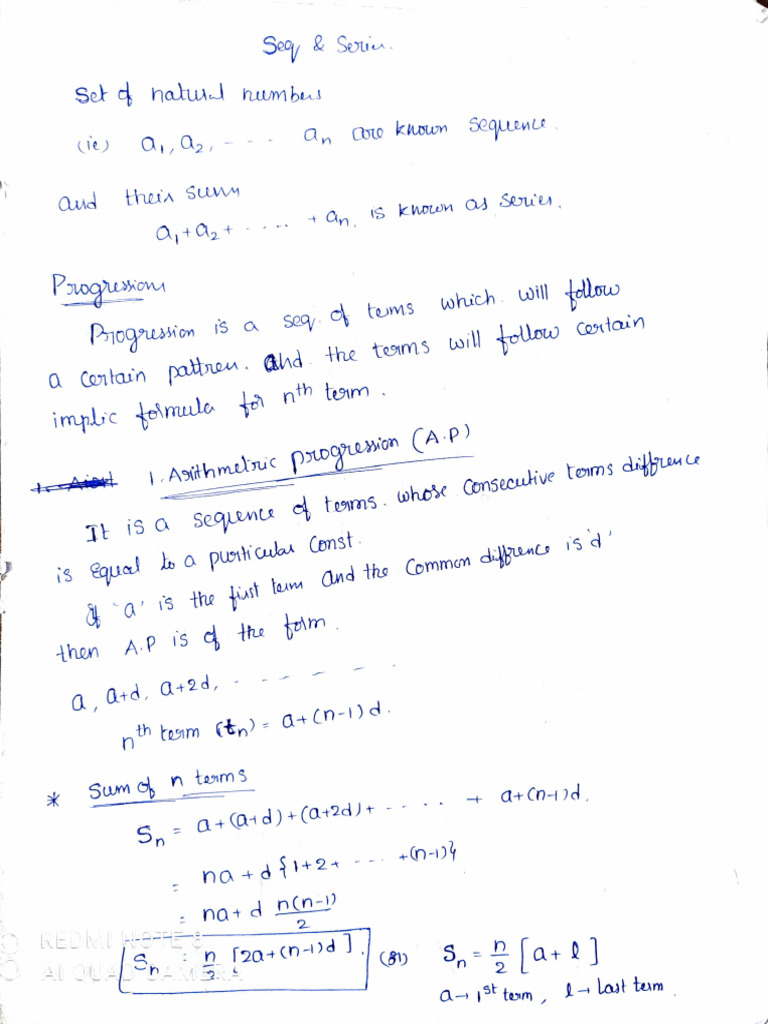 Seq & Series.
Set of natural numbers
(ie) a₁, a₂, - - - - aₙ are known sequence.
and their sum
a₁+a₂+ . . . . + aₙ. is known as series.
Progression
Progression is a seq. of terms which will follow
a certain pattren. And the terms will follow certain
implic formula for nᵗʰ term.
1. Arithmetric progression (A.P)
It is a sequence of terms. whose consecutive terms diffrence
is equal to a purticular const.
If 'a' is the first term and the common diffrence is 'd'
then A.P is of the form.
a, a+d, a+2d, - - - - - -
nᵗʰ term (tₙ) = a+(n-1)d.
* Sum of n terms
Sₙ = a+(a+d)+(a+2d)+ - . . . . + a+(n-1)d.
= na+d{1+2+ - - - - +(n-1)}
= na+d n(n-1)/2
Sₙ = n/2 [2a+(n-1)d]. (or) Sₙ = n/2 [a+l]
a→1ˢᵗ term, l→last term.
REDMI NOTE 8
AI QUAD CAMERA